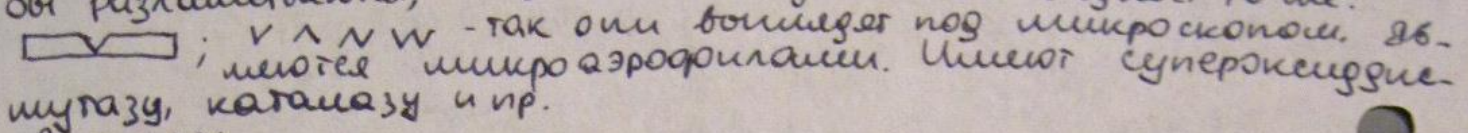 ; V Λ N W - так они выглядят под микроскопом. Яв-
ляются микроаэрофилами. Имеют супероксиддис-
мутазу, каталазу и пр.